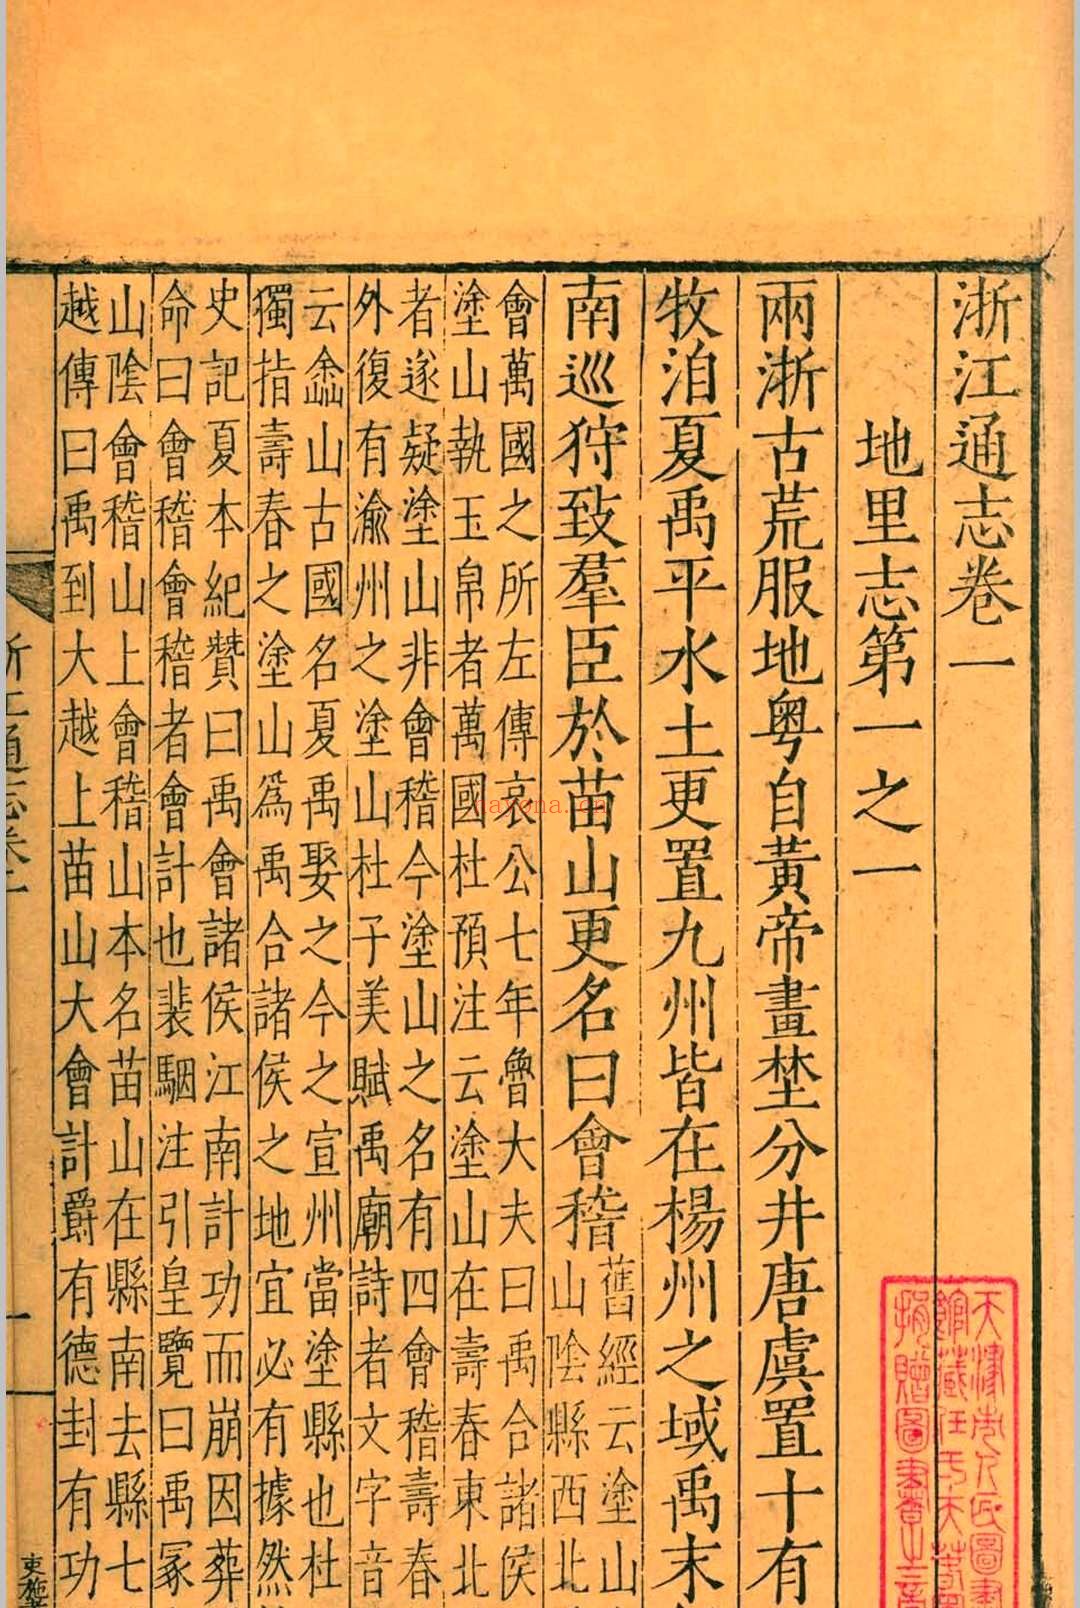 浙江通志卷一
地里志第一之一
兩浙古荒服地粵自黃帝畫埜分井唐虞置十有
牧洎夏禹平水土更置九州皆在楊州之域禹末
南巡狩致羣臣於苗山更名曰會稽
舊經云塗山
山陰縣西北
會萬國之所左傳哀公七年魯大夫曰禹合諸侯
塗山執玉帛者萬國杜預注云塗山在壽春東北
者遂疑塗山非會稽今塗山之名有四會稽壽春
外復有渝州之塗山杜子美賦禹廟詩者文字音
云嵞山古國名夏禹娶之今之宣州當塗縣也杜
獨指壽春之塗山爲禹合諸侯之地宜必有據然
史記夏本紀贊曰禹會諸侯江南計功而崩因葬
命曰會稽會稽者會計也裴駰注引皇覽曰禹冢
山陰會稽山上會稽山本名苗山在縣南去縣七
越傳曰禹到大越上苗山大會計爵有德封有功
浙江通志卷一
一
天津市人民圖書
館藏任氏天春園
捐贈圖書之章
nayona.cn